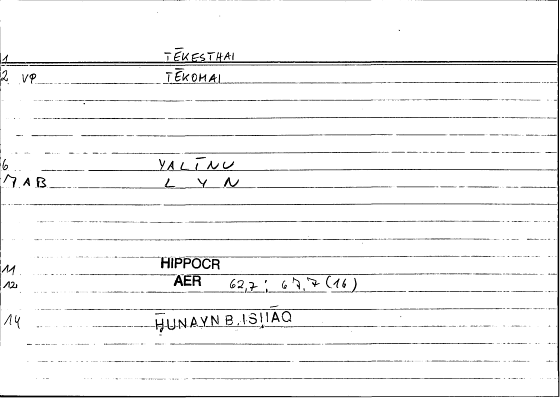 1 TĒKESTHAI
2 VP TĒKOMAI
6 YALĪNU
7 AB L Y N
11 HIPPOCR
12 AER 62,7; 67,7 (16)
14 ḤUNAYN B. ISḤĀQ